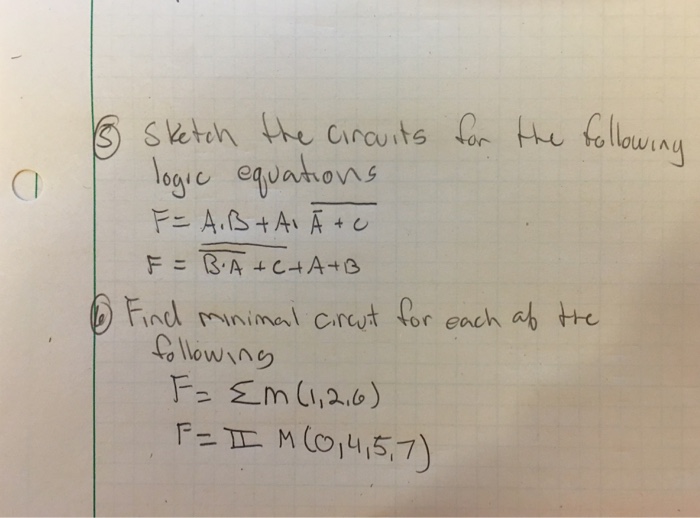 ⑤ Sketch the circuits for the following
logic equations
F = A.B + A. \overline{\overline{A} + C}
F = \overline{\overline{B.A} + C} + A + B
⑥ Find minimal circut for each of the
following
F = Σm (1,2,6)
F = II M (0,4,5,7)